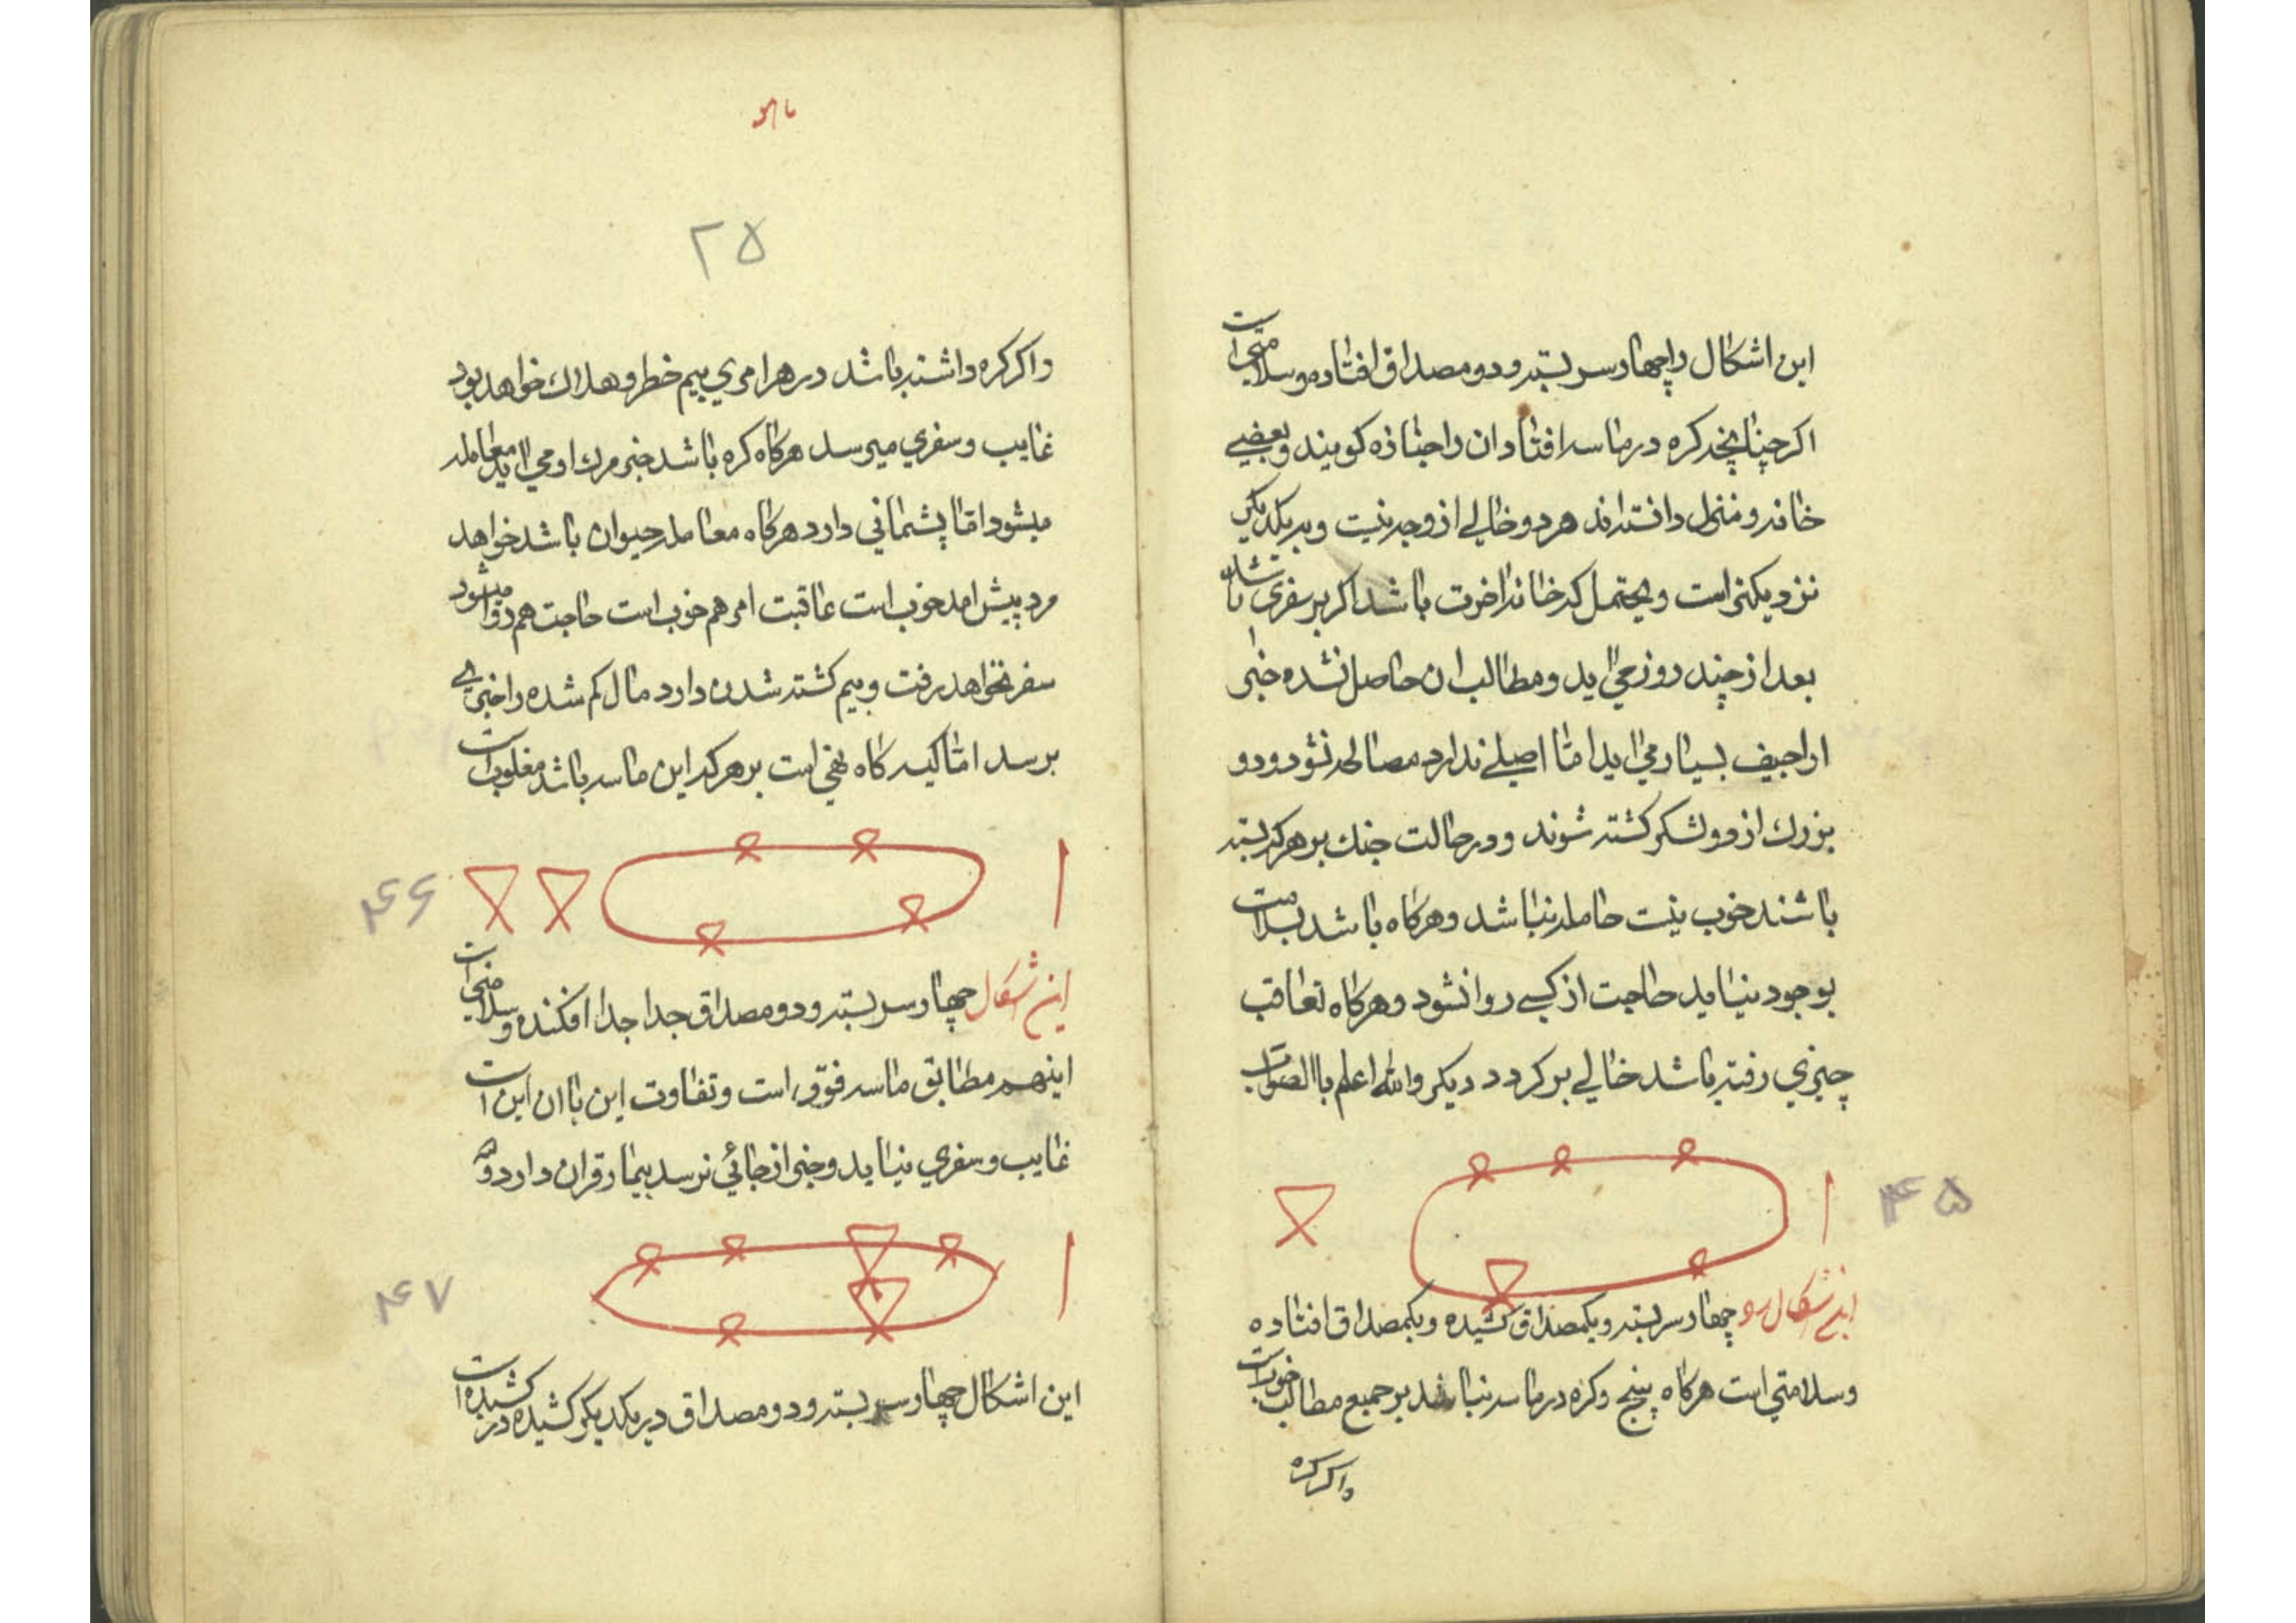 این اشکال را چهار سر بسته و دو مصداق افتاده و سلامتی است
اکر چنانچه کره در ماسه افتاد ان را جنازه کویند و بعضیی
خانه و منزل دانسته اند هر دو خالی از وجه نیست و بر یکدیکر
نزدیکتر است و یحتمل که خانه اخرت باشد اکر بر سفری نشان با
بعد از چند روز می اید و مطالب ان حاصل نشده خبر
اراجیف بسیار می اید اما اصلی ندارد مصالحه نشود و دو
بزرك از دو لشکر کشته شوند و در حالت جنك بر هر که بسته
باشند خوب نیست حامله نباشد و هرکاه باشد بسلامت
بوجود نیاید حاجت از کسی روا نشود و هرکاه تعاقب
چیزی رفته باشد خالی بر کردد دیکر والله اعلم باالصواب
۴۵
این شکال چهار سر بسته و یکمصداق کشیده و یکمصداق افتاده
و سلامتی است هرکاه پنج و کره در ماسه نباشد بر جمیع مطالب خوب است
و اکر کره
۲۵
و اکر کره داشته باشد در هر امری بیم خطر و هلاك خواهد بود
غایب و سفری میرسد هرکاه کره باشد خبر مرك او می اید معامله
میشود اما پشمانی دارد هرکاه معامله حیوان باشد خواهد
مرد پیش امد خوب است عاقبت امر هم خوب است حاجت هم روا میشود
سفر نخواهد رفت و بیم کشته شدن دارد مال کم شده را خبری
برسد اما کیسه کاه نفی است بر هر که این ماسه باشد مغلوب است
۴۶
این شکال چهار سر بسته و دو مصداق جدا جدا افکنده و سلامتی است
اینهم مطابق ماسه فوق است و تفاوت این با ان این است
غایب و سفری نیاید و خبر از جائی نرسد بیمار قران دارد
۴۷
این اشکال چهار سر بسته و دو مصداق در یکدیکر کشیده در کشیده است